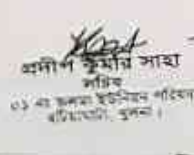 প্রদীপ কুমার সাহা
সচিব
০১ নং জলমা ইউনিয়ন পরিষদ
বটিয়াঘাটা, খুলনা।